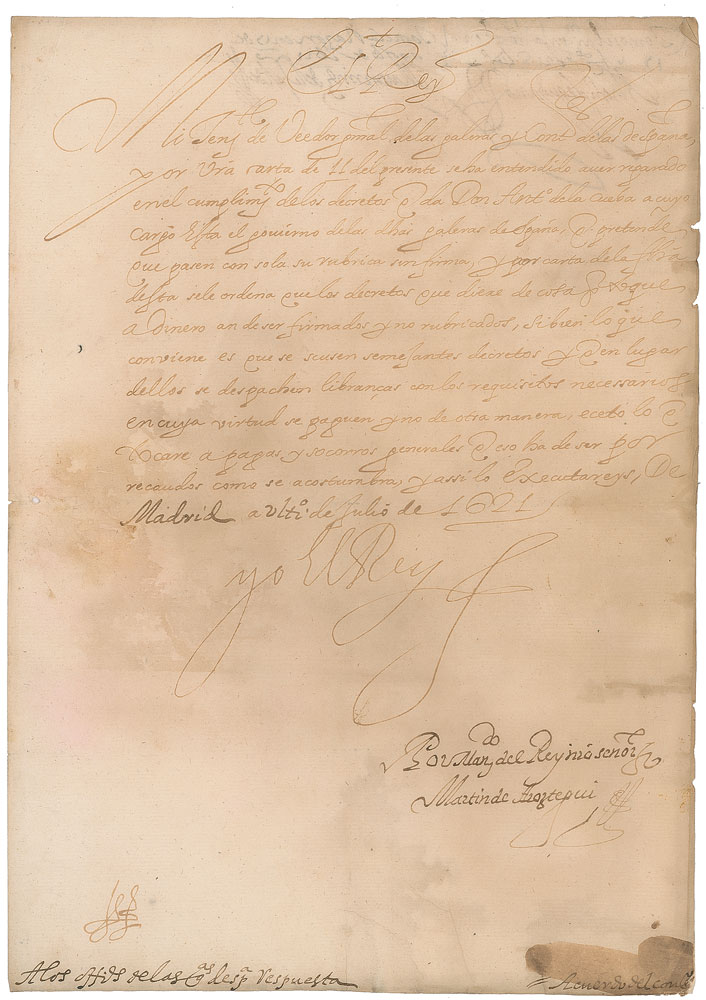 El Rey
Mi Ten.te de Veedor g̃nral de las galeras y Cont.or de las de españa,
por vr̃a carta de 11 del presente se ha entendido auer reparado
en el cumplim.to de los decretos q̃ da Don Ant.o de la Cueba a cuyo
cargo esta el gouierno de las dhas galeras de España, q̃ pretende
que pasen con sola su rubrica sin firma, y por carta de la fh̃a
desta se le ordena que los decretos que diere de cosa q̃ toque
a dinero an de ser firmados y no rubricados, si bien lo que
conviene es que se scusen semejantes decretos y q̃ en lugar
dellos se despachen libranças con los requisitos necessarios
en cuya virtud se paguen y no de otra manera, eceto lo q̃
tocare a pagas, y socorros generales q̃ eso ha de ser por
recaudos como se acostumbra, y assi lo executareys, De
Madrid a vlt.o de Julio de 1621
yo El Rey
Por Man.do del Rey nr̃o señor
Martin de Aroztegui
A los offi.os de las g.as de esp.a Respuesta
Acuerdo del